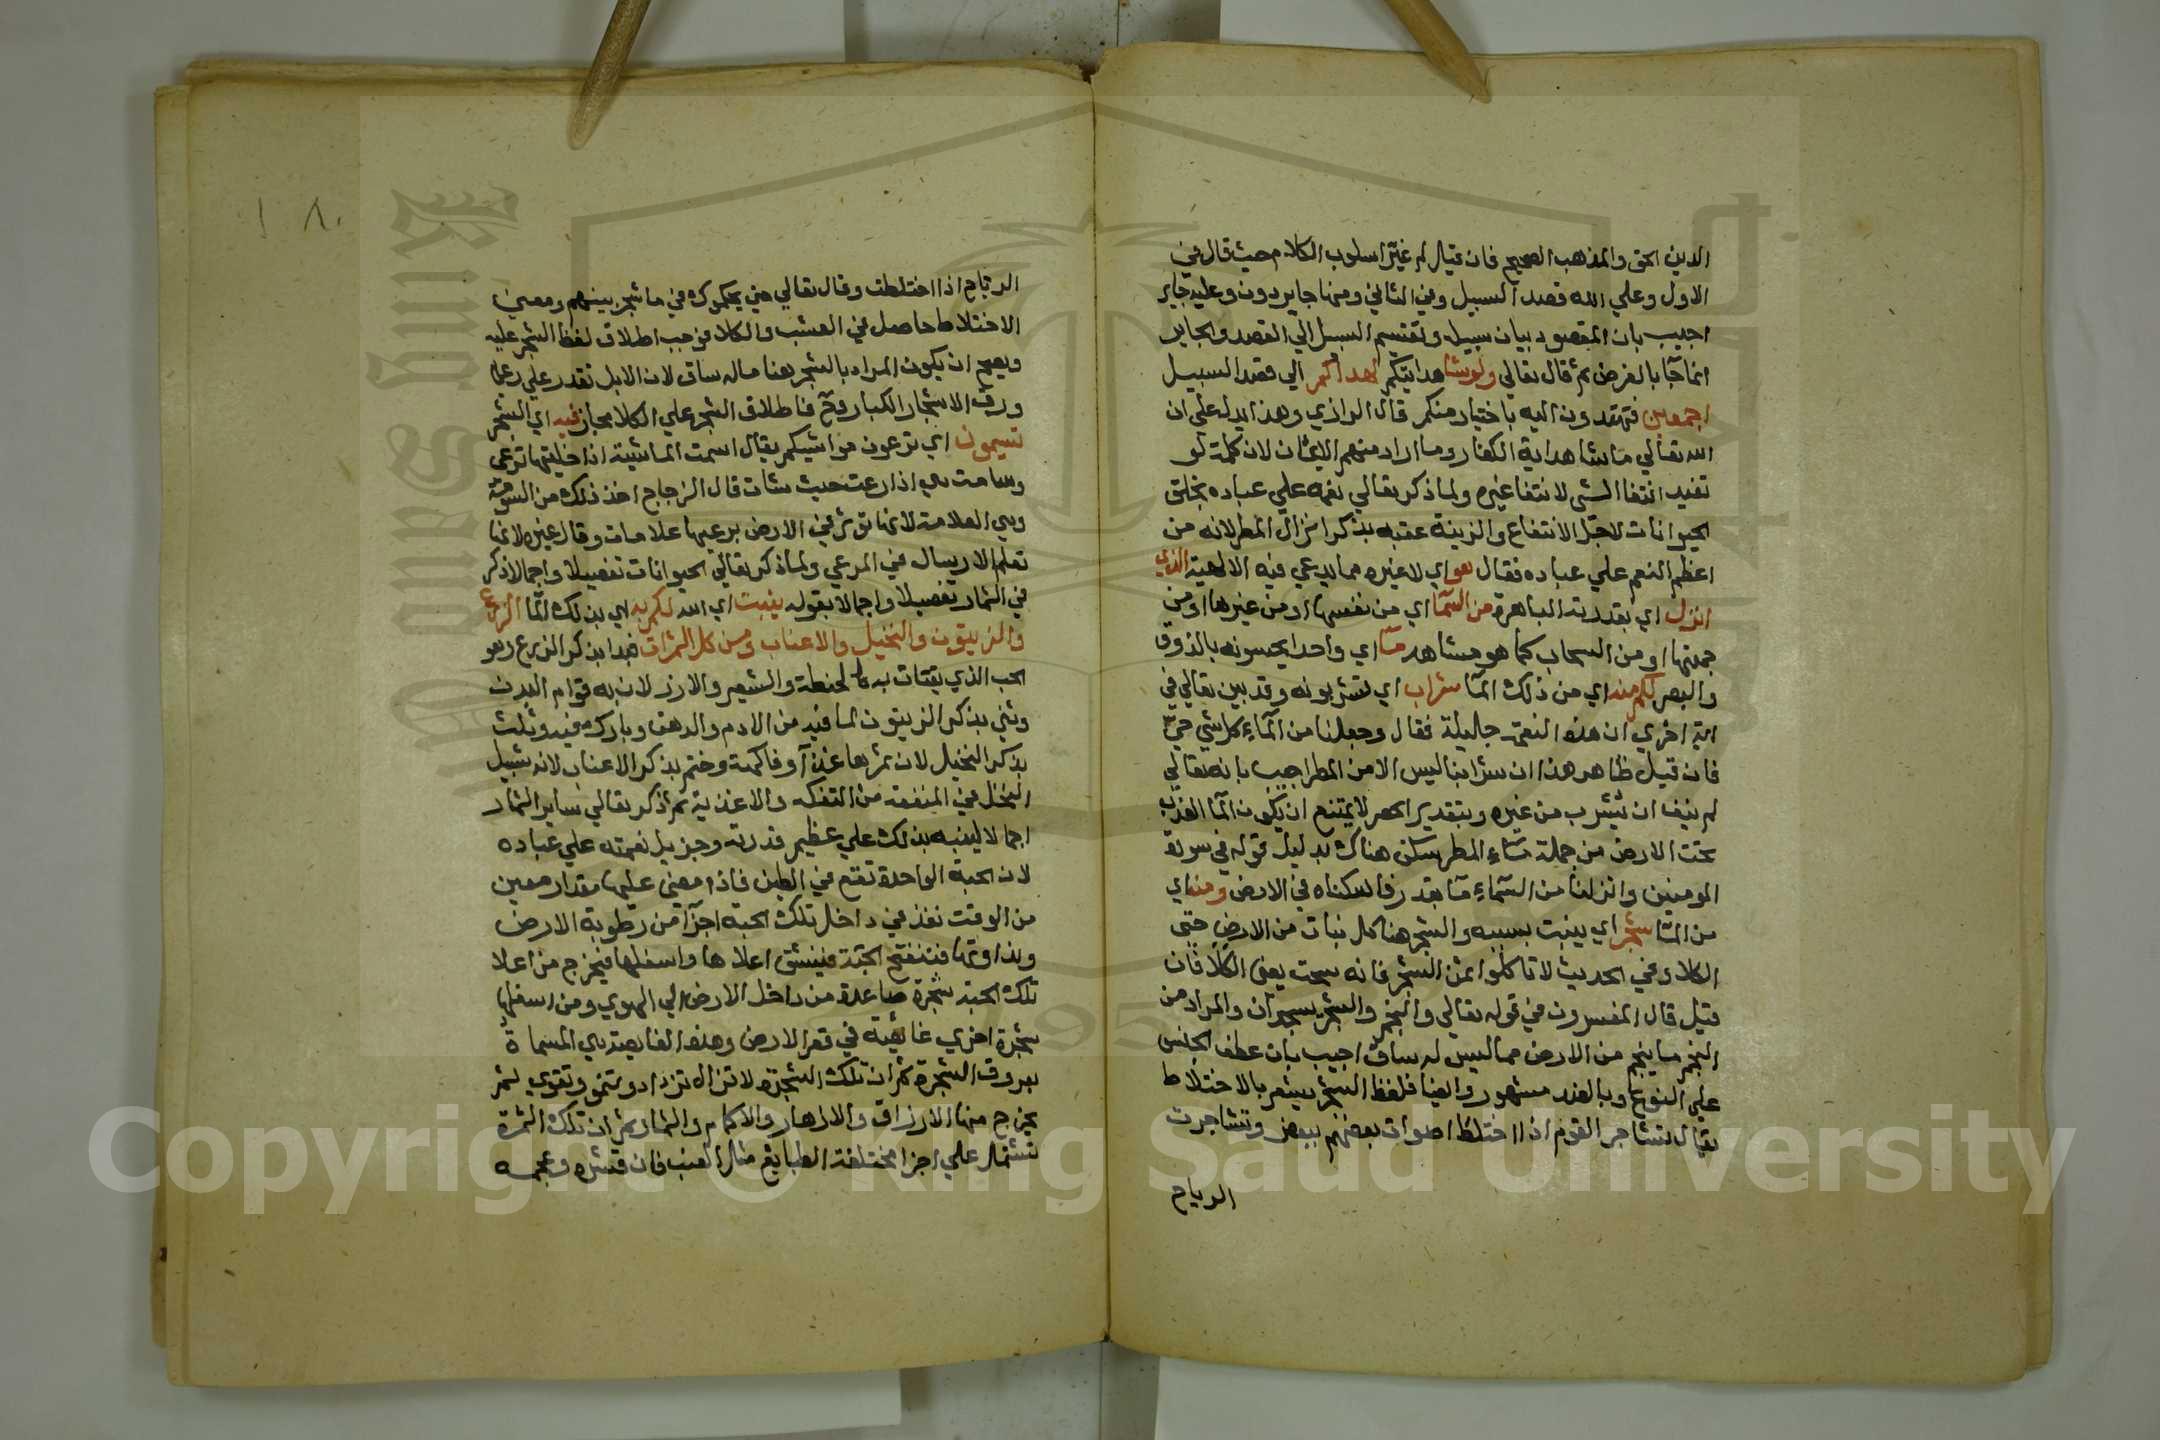 الدين الحق والمذهب الصحيح فان قيل لم غير اسلوب الكلام حيث قال في
الاول وعلي الله قصد السبيل وفي الثاني ومنها جاير دون وعليه جاير
اجيب بان المقصود بيان سبيله وتقسيم السبيل الي القصد والجاير
انما جا بالعرض ثم قال تعالي ولوشا هدايتكم لهداكم الي قصد السبيل
اجمعين فتهتدون اليه باختيار منكم قال الرازي وهذا يدل علي ان
الله تعالي ماشا هداية الكفار وما اراد منهم الايمان لان كلمة لو
تفيد انتفا الشي لانتفا غيره ولما ذكر تعالي نعمه علي عباده بخلق
الحيوانات لاجل الانتفاع والزينة عقبه بذكر انزال المطر لانه من
اعظم النعم علي عباده فقال هو اي لا غيره مما يدعي فيه الالهية الذي
انزل اي بقدرته الباهرة من السما اي من نفسها او من غيرها او من
جهتها او من السحاب كما هو مشاهد ماء اي واحدا يحسونه بالذوق
والبصر لكم منه اي من ذلك الما شراب اي تشربونه وقد بين تعالي في
اية اخري ان هذه النعمة جليلة فقال وجعلنا من الماء كل شي حي
فان قيل ظاهر هذا ان شرابنا ليس الا من المطر اجيب بانه تعالي
لم ينف ان يشرب من غيره وبتقدير الحصر لا يمتنع ان يكون الما العذب
تحت الارض من جملة ماء المطر يسكن هناك بدليل قوله في سورة
المومنين وانزلنا من السماء ماء بقدر فاسكناه في الارض ومنه اي
من الما شجر اي ينبت بسببه والشجر هنا كل نبات من الارض حتى
الكلا وفي الحديث لا تاكلوا ثمن الشجر فانه سحت يعني الكلا فان
قيل قال المفسرون في قوله تعالي والنجم والشجر يسجدان والمراد من
النجم ما ينجم من الارض مما ليس له ساق اجيب بان عطف الجنس
علي النوع وبالضد مشهور وايضا فلفظ الشجر يشعر بالاختلاط
يقال تشاجر القوم اذا اختلط اصوات بعضهم ببعض وتشاجرت
الرياح
١٨٠
الرياح اذا اختلطت وقال تعالي حتي يحكموك في ما شجر بينهم ومعنى
الاختلاط حاصل في العشب والكلا فوجب اطلاق لفظ الشجر عليه
ويصح ان يكون المراد بالشجر هنا ماله ساق لان الابل تقدر علي رعي
ورق الاشجار الكبار وح فاطلاق الشجر علي الكلا مجاز فيه اي الشجر
تسيمون اي ترعون مواشيكم يقال اسمت الماشية اذا خليتها ترعى
وسامت هي اذا رعت حيث شات قال الزجاج اخذ ذلك من السومة
وهي العلامة لانها توثر في الارض برعيها علامات وقال غيره لانها
تعلم الارسال في المرعي ولما ذكر تعالي الحيوانات تفصيلا واجمالا ذكر
في الثمار تفصيلا واجمالا بقوله ينبت اي الله لكم به اي بذلك الما الزرع
والزيتون والنخيل والاعناب ومن كل الثمرات فبدا بذكر الزرع وهو
الحب الذي يقتات به كالحنطة والشعير والارز لان به قوام البدن
وثني بذكر الزيتون لما فيه من الادم والدهن وبارك فيه وثلث
بذكر النخيل لان ثمرها غذا وفاكهة وختم بذكر الاعناب لانه شبيه
النخل في المنفعة من التفكه والاغذية ثم ذكر تعالي ساير الثمار
اجمالا لينبه بذلك علي عظيم قدرته وجزيل نعمته علي عباده
لان الحبة الواحدة تقع في الطين فاذا مضى عليها مقدار معين
من الوقت نفذ في داخل تلك الحبة اجزا من رطوبة الارض
ونداوتها فتنفتح الحبة فينشق اعلاها واسفلها فيخرج من اعلا
تلك الحبة شجرة صاعدة من داخل الارض الي الهوي ومن اسفلها
شجرة اخري غائصة في قعر الارض وهذه الغايصة هي المسماة
بعروق الشجرة ثم ان تلك الشجرة لا تزال تزداد وتنمو وتقوي ثم
يخرج منها الاوراق والازهار والاكمام والثمار ثم ان تلك الثمرة
تشتمل علي اجزا مختلفة الطبايع مثل العنب فان قشره وعجمه
Copyright © King Saud University
King Saud University
1957